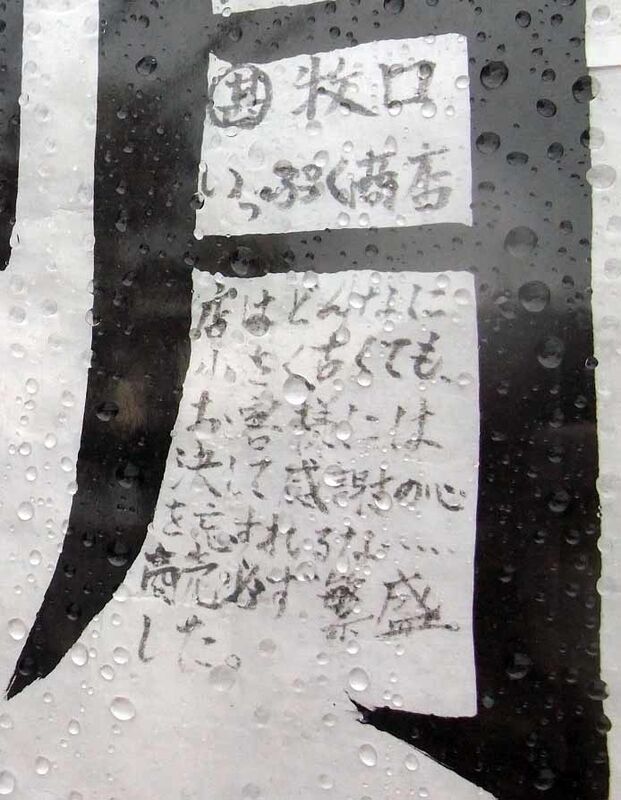 井 牧口
いっぷく商店
店はどんなに
小さく古くても、
お客様には
決して感謝の心
を忘すれるな……
商売必ず繁盛
した。